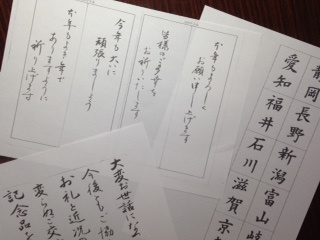 今年もよろしく
お願い申し上げます
皆様のご多幸を
お祈りいたします
今年も大いに
頑張りましょう
お年もよき年で
ありますように
祈り上げます
青
岡長野新潟富山岐
愛知福井石川滋賀京
大変お世話にな
今後ともご協
お礼と近況の
変らぬご交
記念品